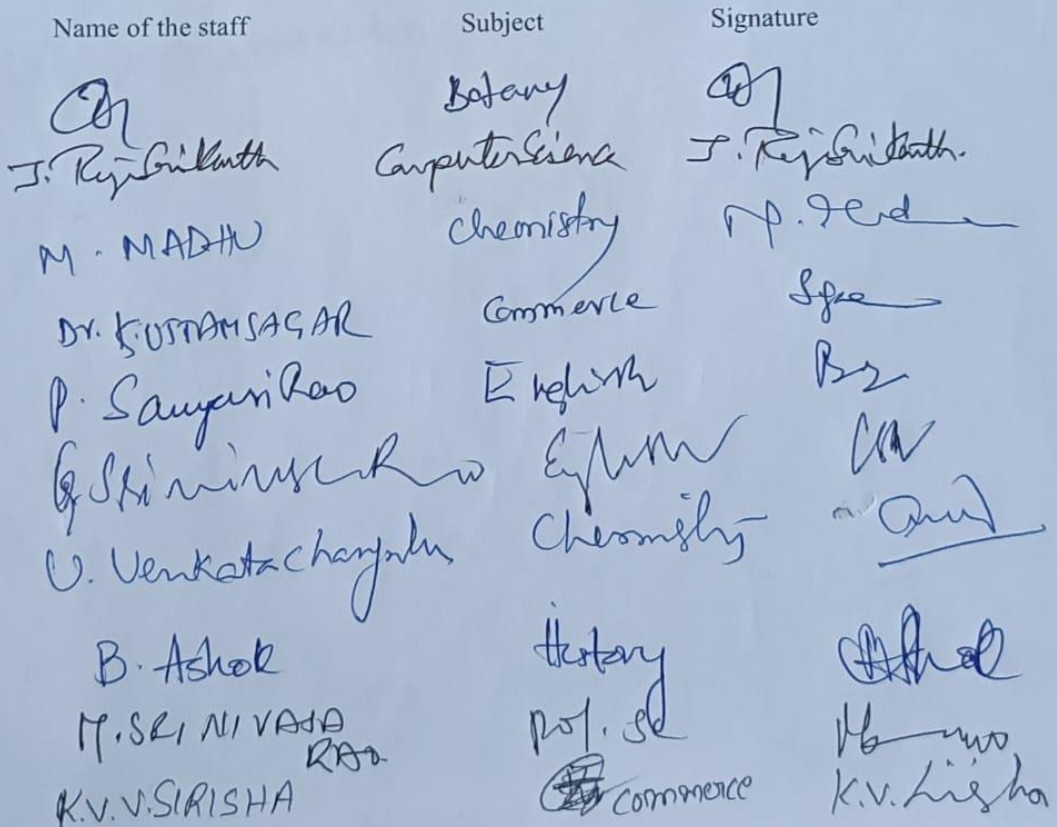 Name of the staff Subject Signature
Botany
J. Raji Srikanth Computer Science J. Raji Srikanth.
M. MADHU Chemistry
Dr. K. UTTAMSAGAR Commerce
P. Sanyasi Rao English
G Srinivasa Rao English
U. Venkatacharyulu Chemistry
B. Ashok History Ashok
M. SRINIVASA Pol. Sc
RAO
K.V.V. SIRISHA commerce K.V. Sirisha